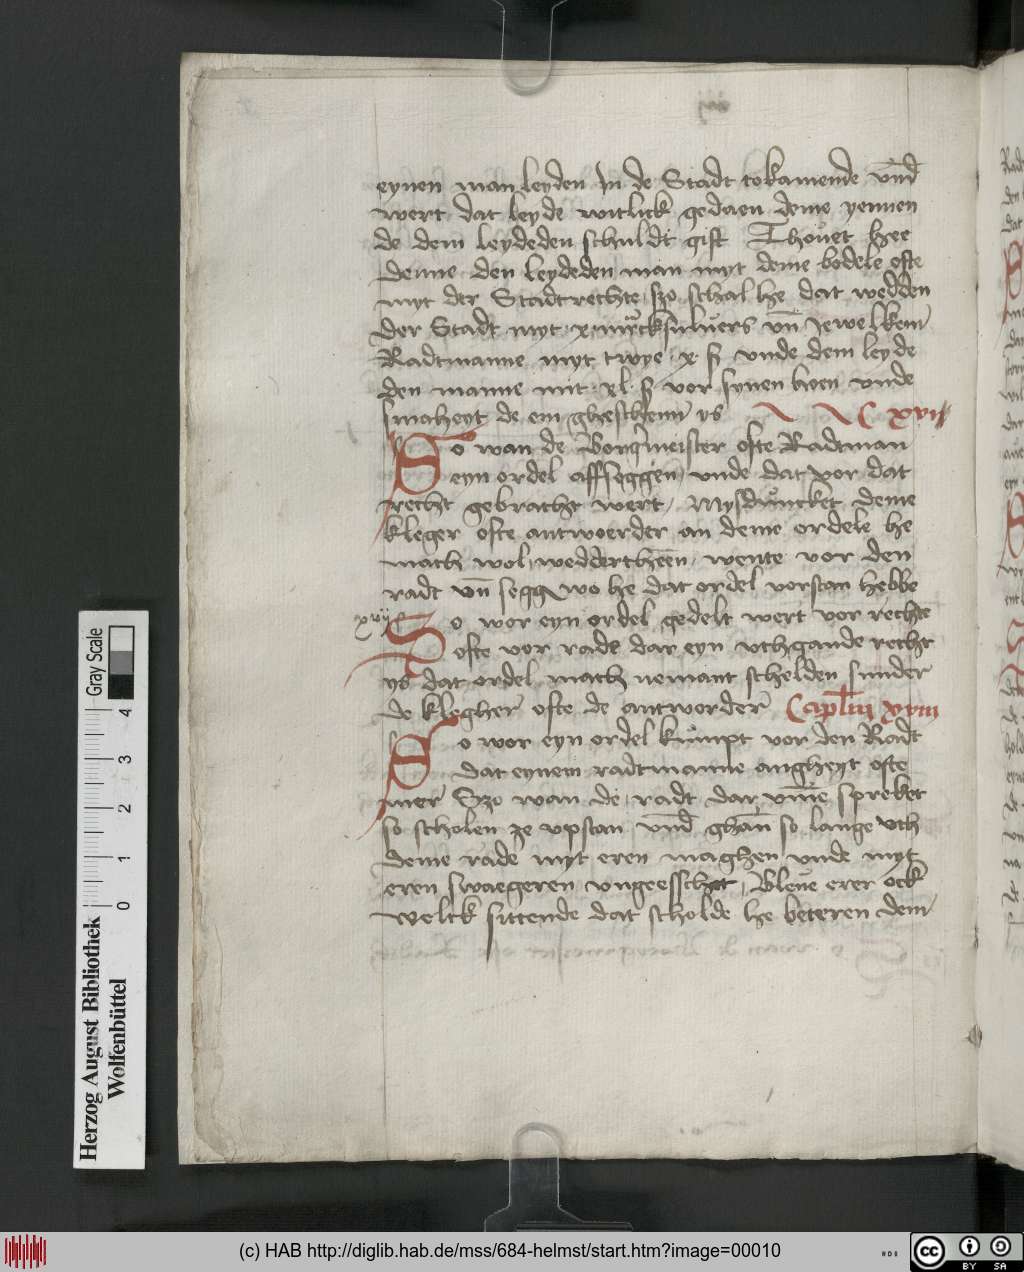 eynen man leyden In de Stadt tokamende vnd̄
wert dat leyde witlick gedaen deme yennen
de dem leydeden schuldt gift Thouet hee
denne den leydeden man myt deme bodele ofte
myt der Stadtrechte szo schal he dat wedden
der Stadt myt x mr̃cksuluers vn̄ Jewelkem
Radtmanne myt twye x ß vnde dem leyde
den manne mit xl ß vor synen hoen vnde
smaheyt de em gheschenn ys C xvij
So wan de Borgmeister ofte Radtman
eyn ordel affseggen vnde dat vor dat
recht gebracht wert, Mysduncket deme
kleger ofte antworder an deme ordele he
mach wol weddertheen wente vor den
radt vn̄ segge wo he dat ordel vorstan hebbe
xvij So wor eyn ordel gedelt wert vor rechte
ofte vor rade dar eyn vthgande recht
ys dat ordel mach nemant schelden sunder
de klegher ofte de antworder Caplm xviij
So wor eyn ordel kumpt vor den Radt
dat eynem radtmanne angheyt ofte
mer Szo wan de radt dar vm̄e spreket
so scholen ze vpstan vnd̄ ghan so lange vth
deme rade myt eren maghen vnde myt
eren swaegeren vngeesschet, Bleue erer ock
welck sittende dat scholde he beteren dem
Herzog August Bibliothek
Wolfenbüttel
Gray Scale
0 1 2 3 4
(c) HAB http://diglib.hab.de/mss/684-helmst/start.htm?image=00010
cc BY SA